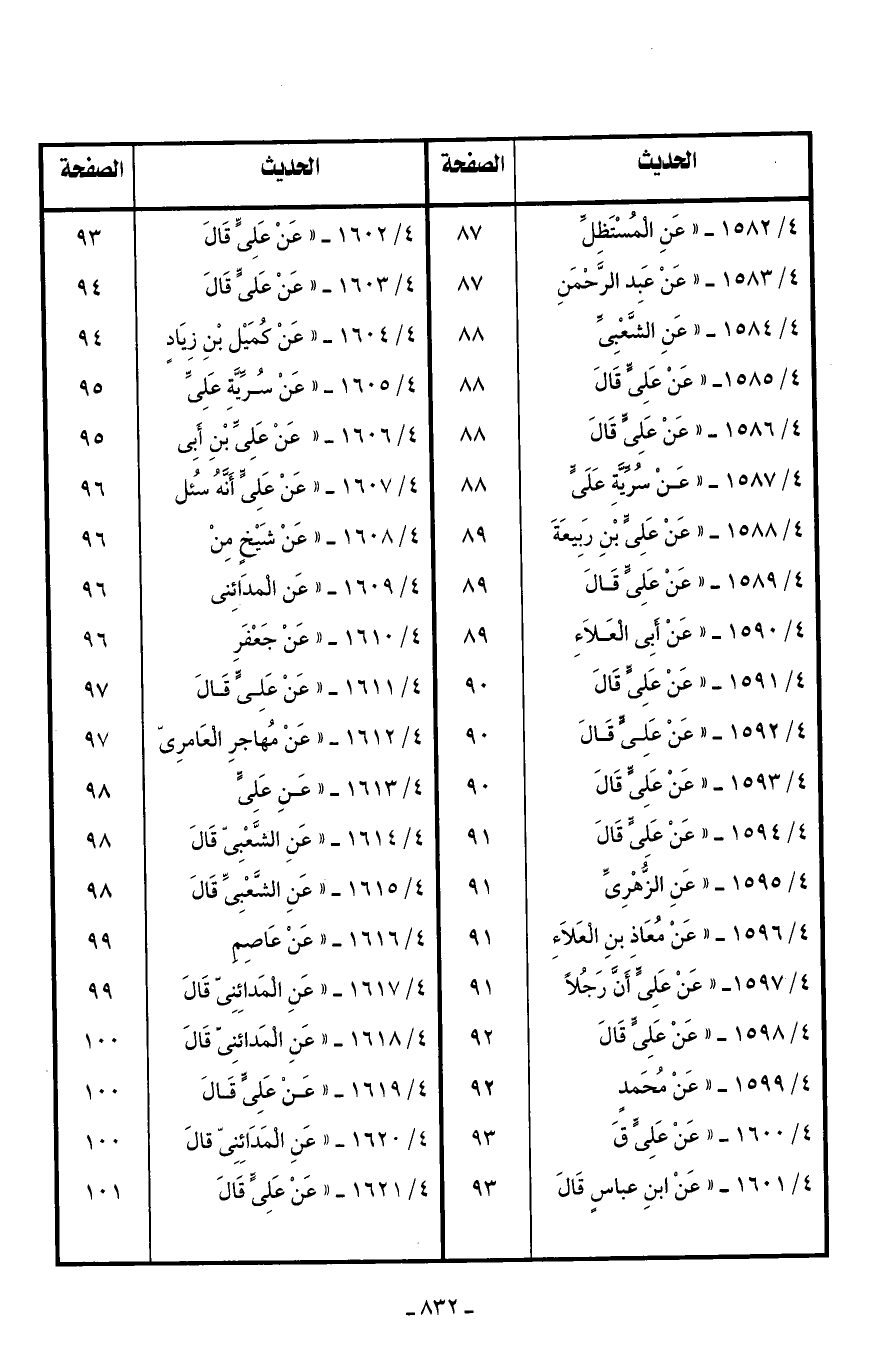 الحديث الصفحة الحديث الصفحة
٤/ ١٥٨٢ ـ « عَنِ الْمُسْتَظِلِّ ٨٧ ٤/ ١٦٠٢ ـ « عَنْ عَلِىٍّ قَالَ ٩٣
٤/ ١٥٨٣ ـ « عَنْ عَبد الرَّحْمَنِ ٨٧ ٤/ ١٦٠٣ ـ « عَنْ عَلِىٍّ قَالَ ٩٤
٤/ ١٥٨٤ ـ « عَنِ الشَّعْبِىِّ ٨٨ ٤/ ١٦٠٤ ـ « عَنْ كُمَيْلِ بْنِ زِيَادٍ ٩٤
٤/ ١٥٨٥ـ « عَنْ عَلِىٍّ قَالَ ٨٨ ٤/ ١٦٠٥ ـ « عَنْ سُـرِّيَّةِ عَلِىٍّ ٩٥
٤/ ١٥٨٦ ـ « عَنْ عَلِىٍّ قَالَ ٨٨ ٤/ ١٦٠٦ ـ « عَنْ عَلِىِّ بْنِ أَبِى ٩٥
٤/ ١٥٨٧ ـ « عَـنْ سُرِّيَّةِ عَلَىٍّ ٨٨ ٤/ ١٦٠٧ ـ « عَنْ عَلِىٍّ أَنَّهُ سئُل ٩٦
٤/ ١٥٨٨ ـ « عَنْ عَلِىِّ بْنِ رَبِيعَةَ ٨٩ ٤/ ١٦٠٨ ـ « عَنْ شَيْخٍ مِنْ ٩٦
٤/ ١٥٨٩ ـ « عَنْ عَلِىٍّ قَـالَ ٨٩ ٤/ ١٦٠٩ ـ « عَنِ الْمدَائِنى ٩٦
٤/ ١٥٩٠ ـ « عَنْ أَبِى الْعَـلاَءِ ٨٩ ٤/ ١٦١٠ ـ « عَنْ جَعْفَرِ ٩٦
٤/ ١٥٩١ ـ « عَنْ عَلِىٍّ قَالَ ٩٠ ٤/ ١٦١١ ـ « عَنْ عَلـِىٍّ قَـالَ ٩٧
٤/ ١٥٩٢ ـ « عَنْ عَلِـىٍّ قَـالَ ٩٠ ٤/ ١٦١٢ ـ « عَنْ مُهاجرِ الْعَامرِىّ ٩٧
٤/ ١٥٩٣ ـ « عَنْ عَلِىٍّ قَالَ ٩٠ ٤/ ١٦١٣ ـ « عَـنِ عَلِىٍّ ٩٨
٤/ ١٥٩٤ ـ « عَنْ عَلِىٍّ قَالَ ٩١ ٤/ ١٦١٤ ـ « عَنِ الشَّعْبِىّ قَالَ ٩٨
٤/ ١٥٩٥ ـ « عَنِ الزُّهْرِىِّ ٩١ ٤/ ١٦١٥ ـ « عَنِ الشَّعْبِىِّ قَالَ ٩٨
٤/ ١٥٩٦ ـ « عَنْ مُعَاذِ بنِ الْعَلاَءِ ٩١ ٤/ ١٦١٦ ـ « عَنْ عَاصِمٍ ٩٩
٤/ ١٥٩٧ـ « عَنْ عَلِىٍّ أَنَّ رَجُلاً ٩١ ٤/ ١٦١٧ ـ « عَنِ الْمَدَائِنِىّ قَالَ ٩٩
٤/ ١٥٩٨ ـ « عَنْ عَلِىٍّ قَالَ ٩٢ ٤/ ١٦١٨ ـ « عَنِ الْمَدائنِىّ قَالَ ١٠٠
٤/ ١٥٩٩ ـ « عَنْ مُحَمدٍ ٩٢ ٤/ ١٦١٩ ـ « عَـنْ عَلِىٍّ قَـالَ ١٠٠
٤/ ١٦٠٠ ـ « عَنْ عَلِىٍّ قَ ٩٣ ٤/ ١٦٢٠ ـ « عَنِ الْمَدَائِنىّ قالَ ١٠٠
٤/ ١٦٠١ ـ « عَنْ ابنِ عباسٍ قَالَ ٩٣ ٤/ ١٦٢١ ـ « عَنْ عَلِىٍّ قَالَ ١٠١
ـ ٨٣٢ ـ